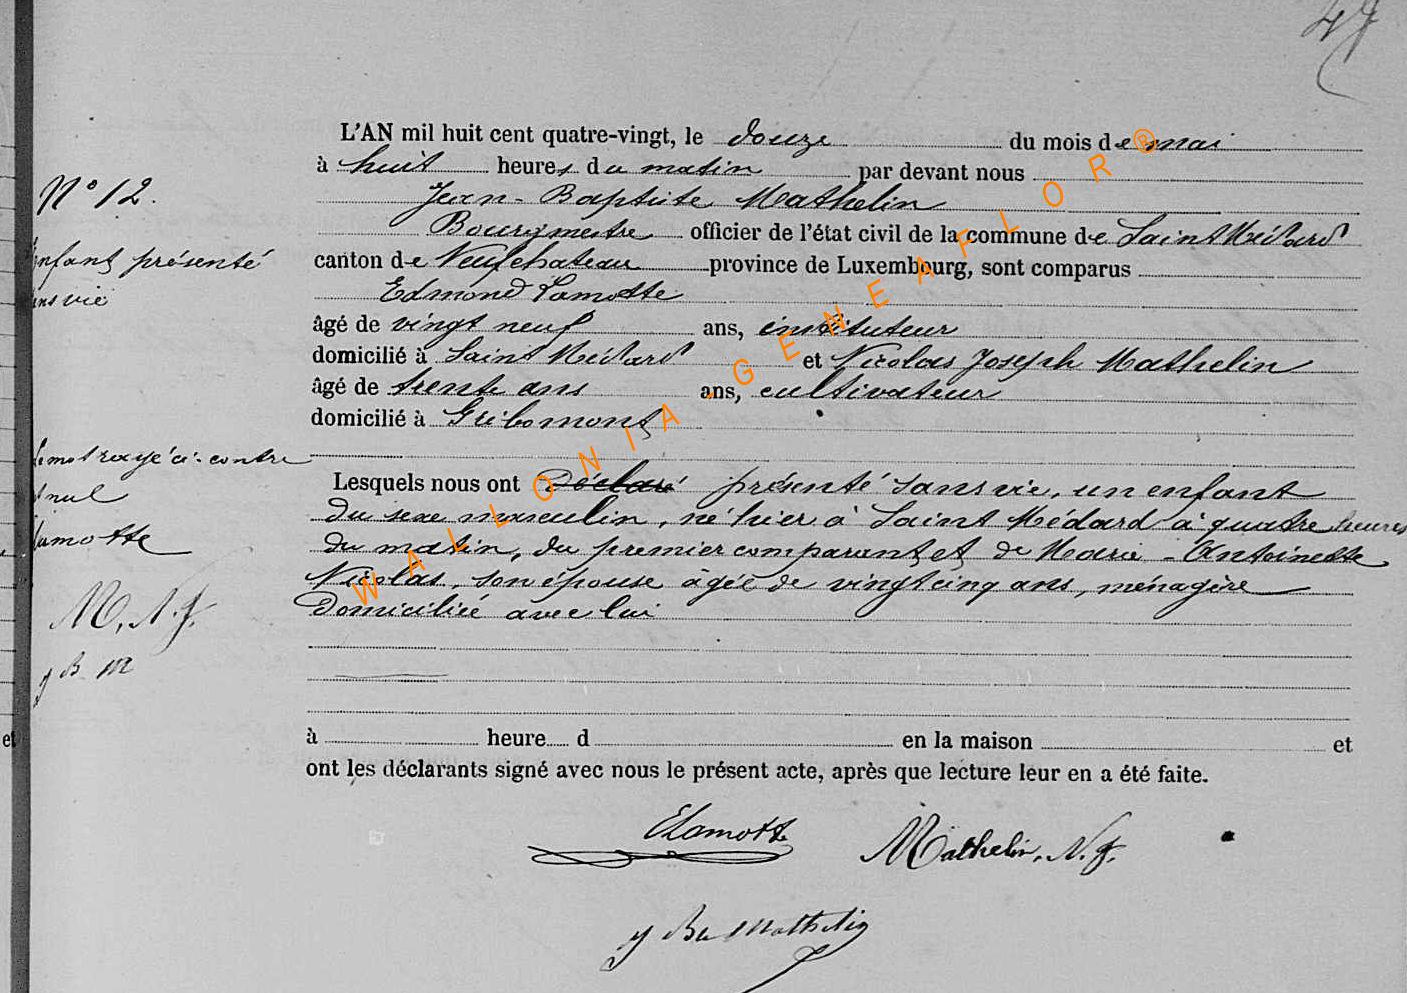 49
L'AN mil huit cent quatre-vingt, le douze du mois de mai
à huit heures du matin par devant nous
N° 12.
Jean-Baptiste Mathelin
Bourgmestre officier de l'état civil de la commune de Saint Médard
enfant présenté
sans vie
canton de Neufchateau province de Luxembourg, sont comparus
Edmond Lamotte
âgé de vingt neuf ans, instituteur
domicilié à Saint Médard et Nicolas Joseph Mathelin
âgé de trente ans ans, cultivateur
domicilié à Gribomont
Le mot rayé ci-contre
nul
Lamotte
M. N. J.
J B M
Lesquels nous ont déclaré présenté sans vie, un enfant
du sexe masculin, né hier à Saint Médard à quatre heures
du matin, du premier comparant et de Marie-Antoinette
Nicolas, son épouse âgée de vingt cinq ans, ménagère
domiciliée avec lui
à heure d en la maison et
et
ont les déclarants signé avec nous le présent acte, après que lecture leur en a été faite.
ELamotte
Mathelin, N. J.
J Bte Mathelin
WALLONIA.GENEAFLOR®